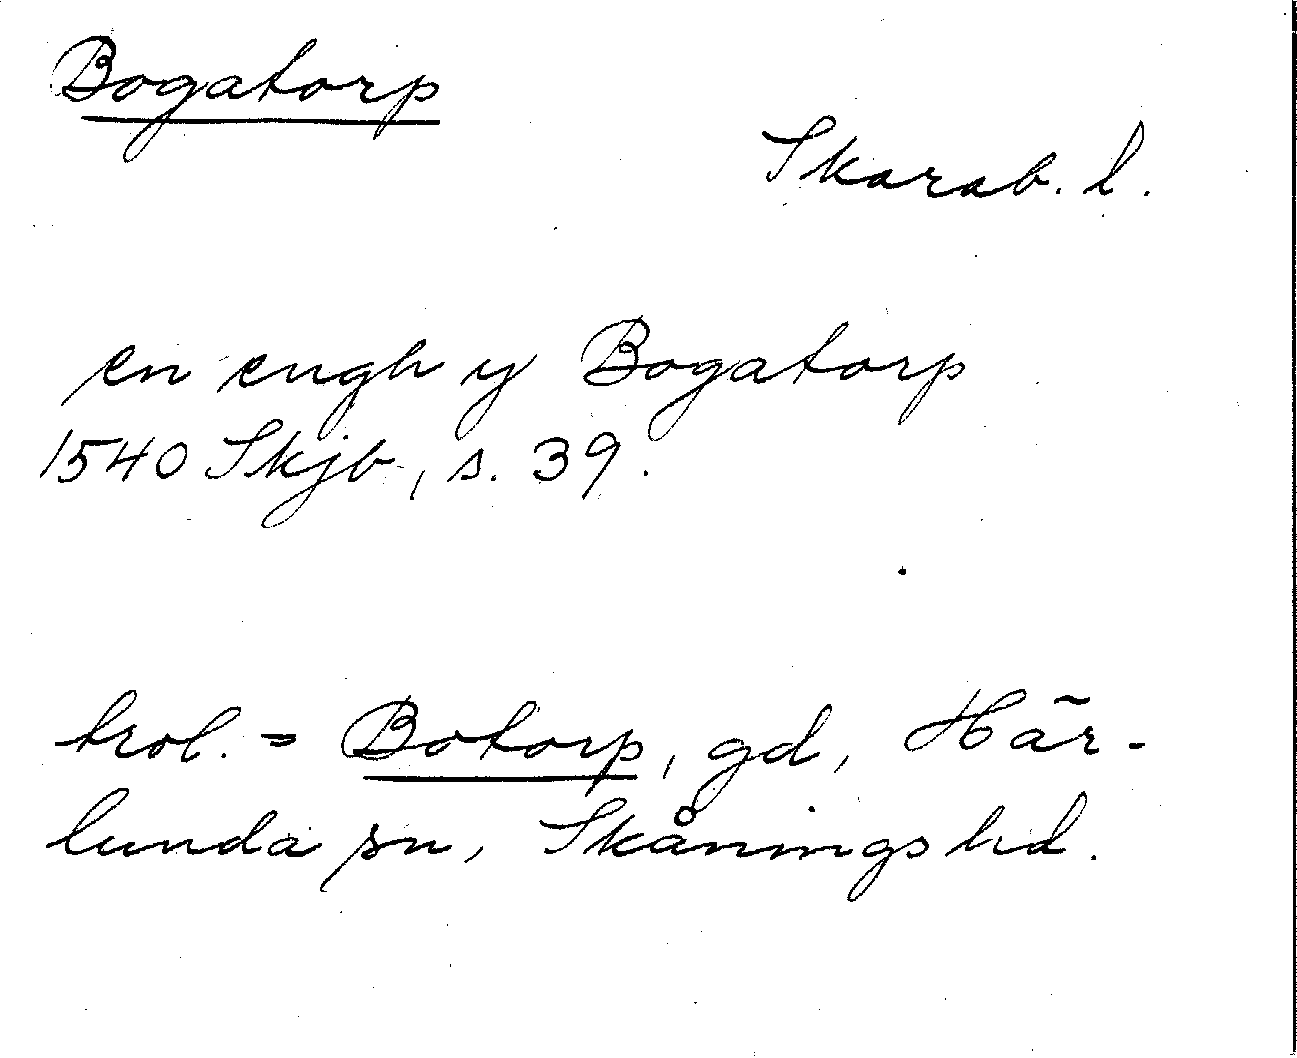 Bogatorp
Skarab. l.
en engh y Bogatorp
1540 Skjb, s. 39.
trol. = Botorp, gd, Här-
lunda sn, Skånings hd.